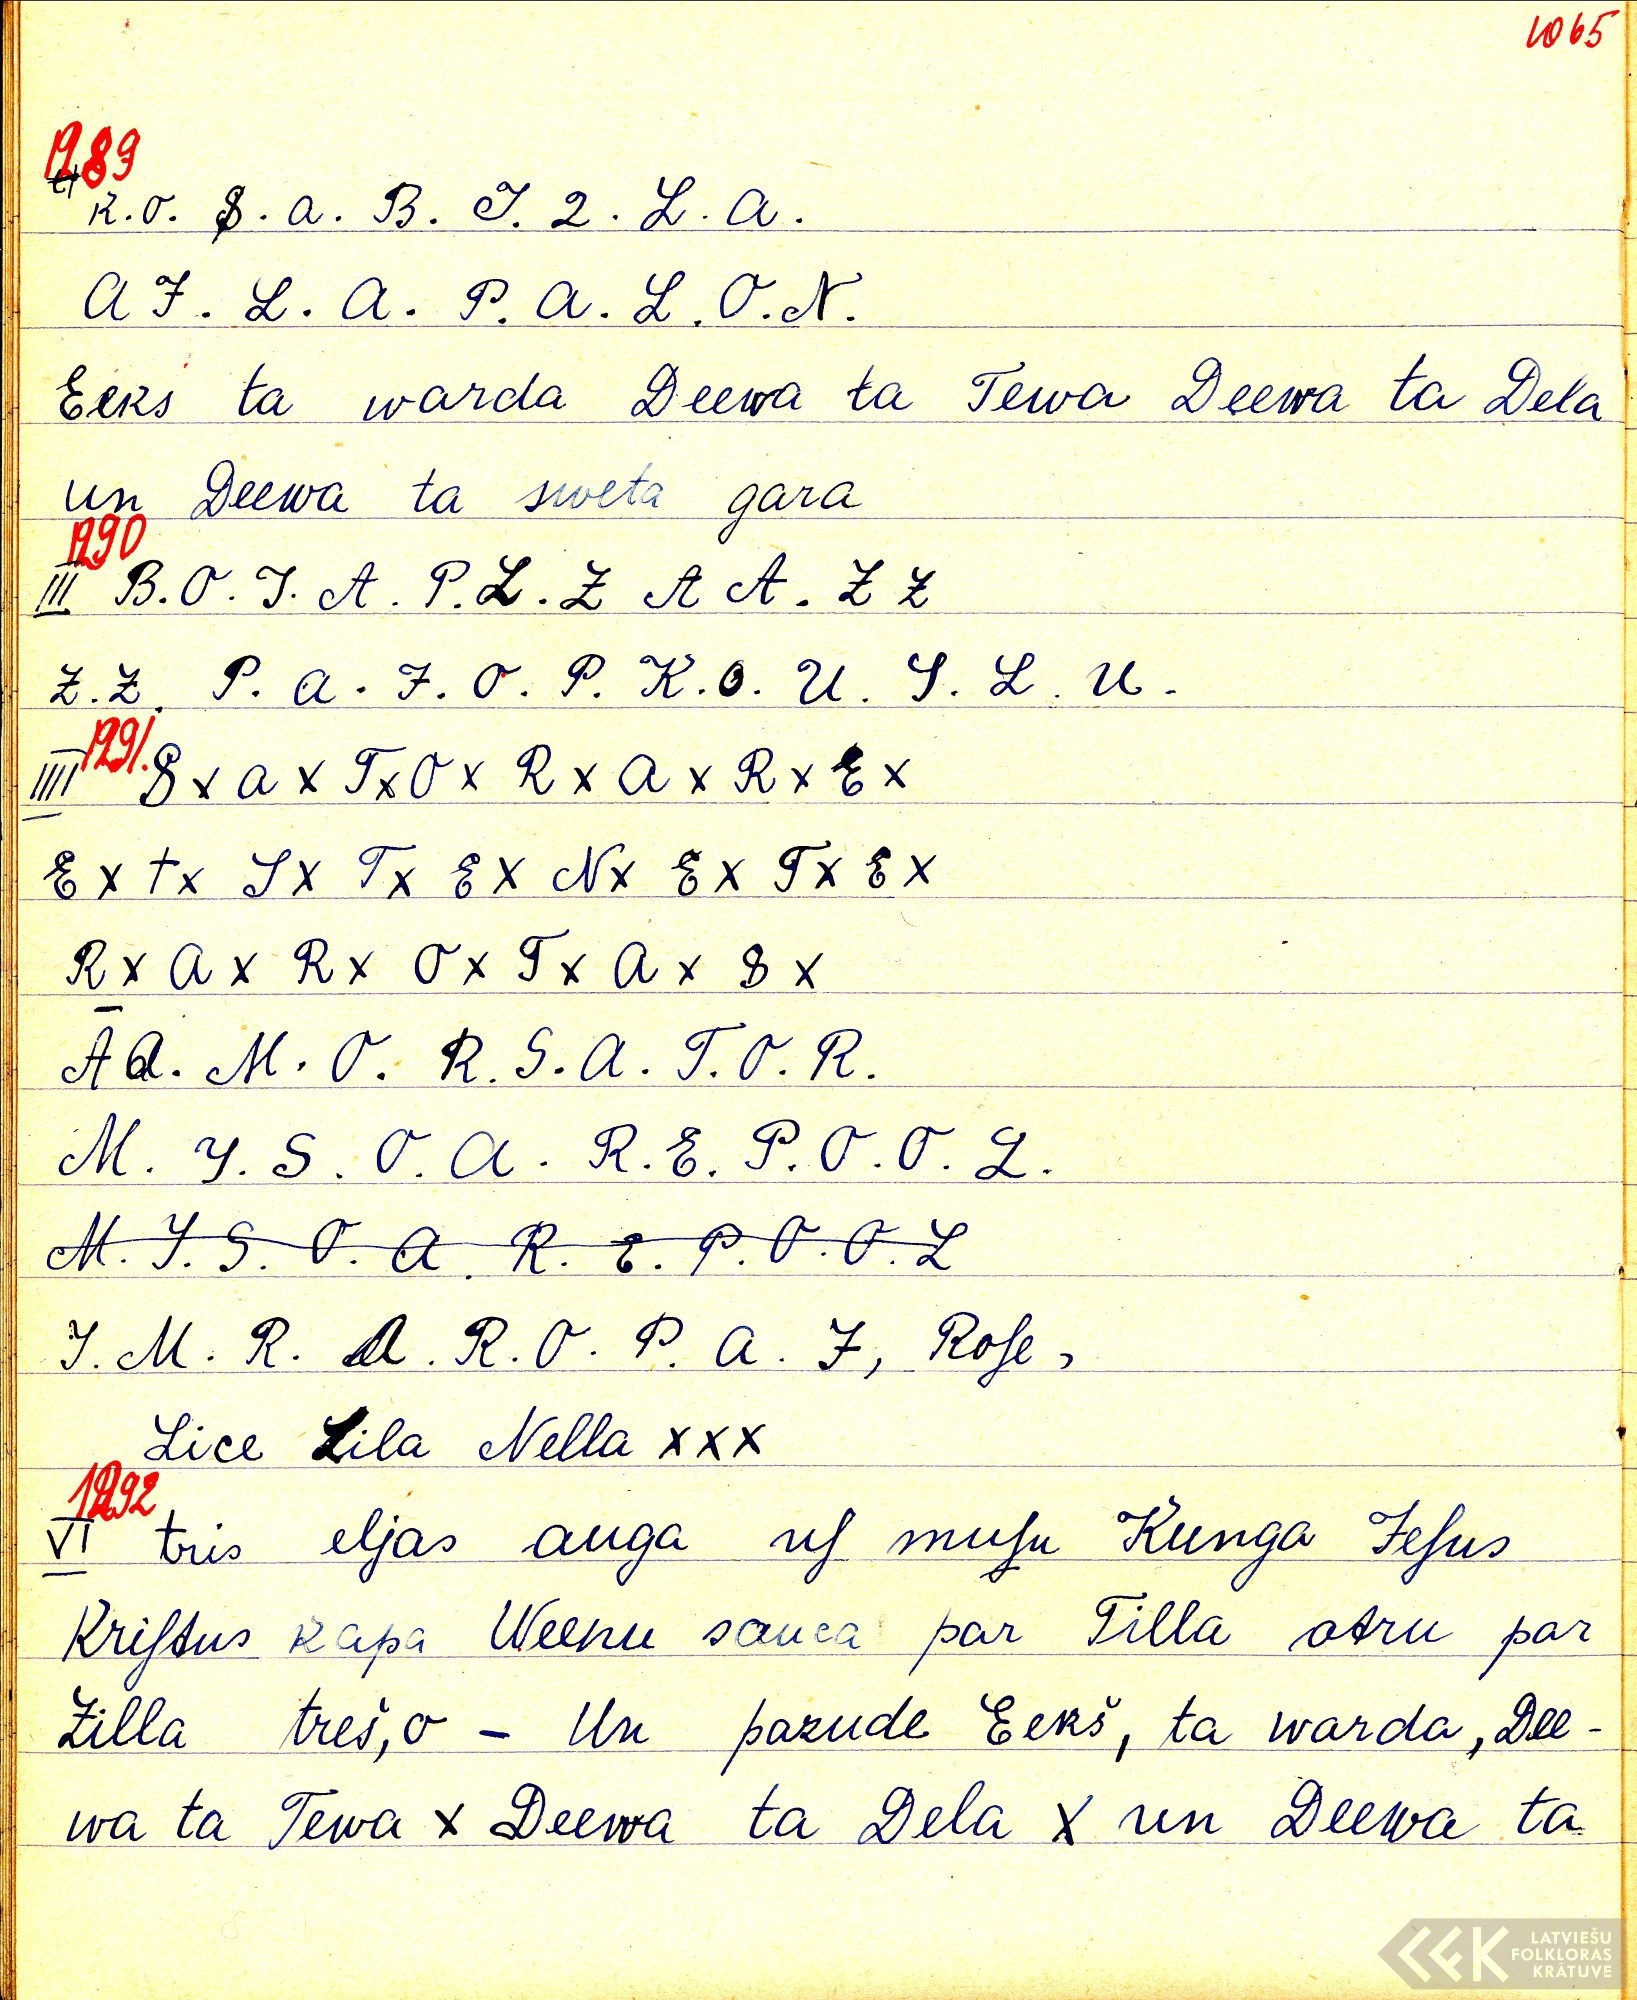 1065
1289
K. O. S. a. B. J. 2. L. A.
A J. L. A. P. A. L. O. N.
Eeks ta warda Deewa ta Tewa Deewa ta Dela
un Deewa ta sweta gara
1290
III B. O. J. A. P. L. Z A A. Z Z
Z. Z. P. a. J. O. P. K. O. U. S. L. U.
1291.
IIII S x a x T x O x R x A x R x E x
E x t x S x T x E x N x E x T x E x
R x A x R x O x T x A x S x
A A. M. O. R. S. A. T. O. R.
M. Y. S. O. A. R. E. P. O. O. L.
M. J. S. O. A. R. E. P. O. O. L
J. M. R. A. R. O. P. A. J, Roſe,
Lice Lila Nella x x x
1292
VI tris eljas auga uſ muſu Kunga Jeſus
Kriſtus kapa Weenu sauca par Tilla otru par
Zilla treš, o – Un pazude Eekš, ta warda, Dee-
wa ta Tewa x Deewa ta Dela x un Deewa ta
LATVIEŠU
FOLKLORAS
KRĀTUVE